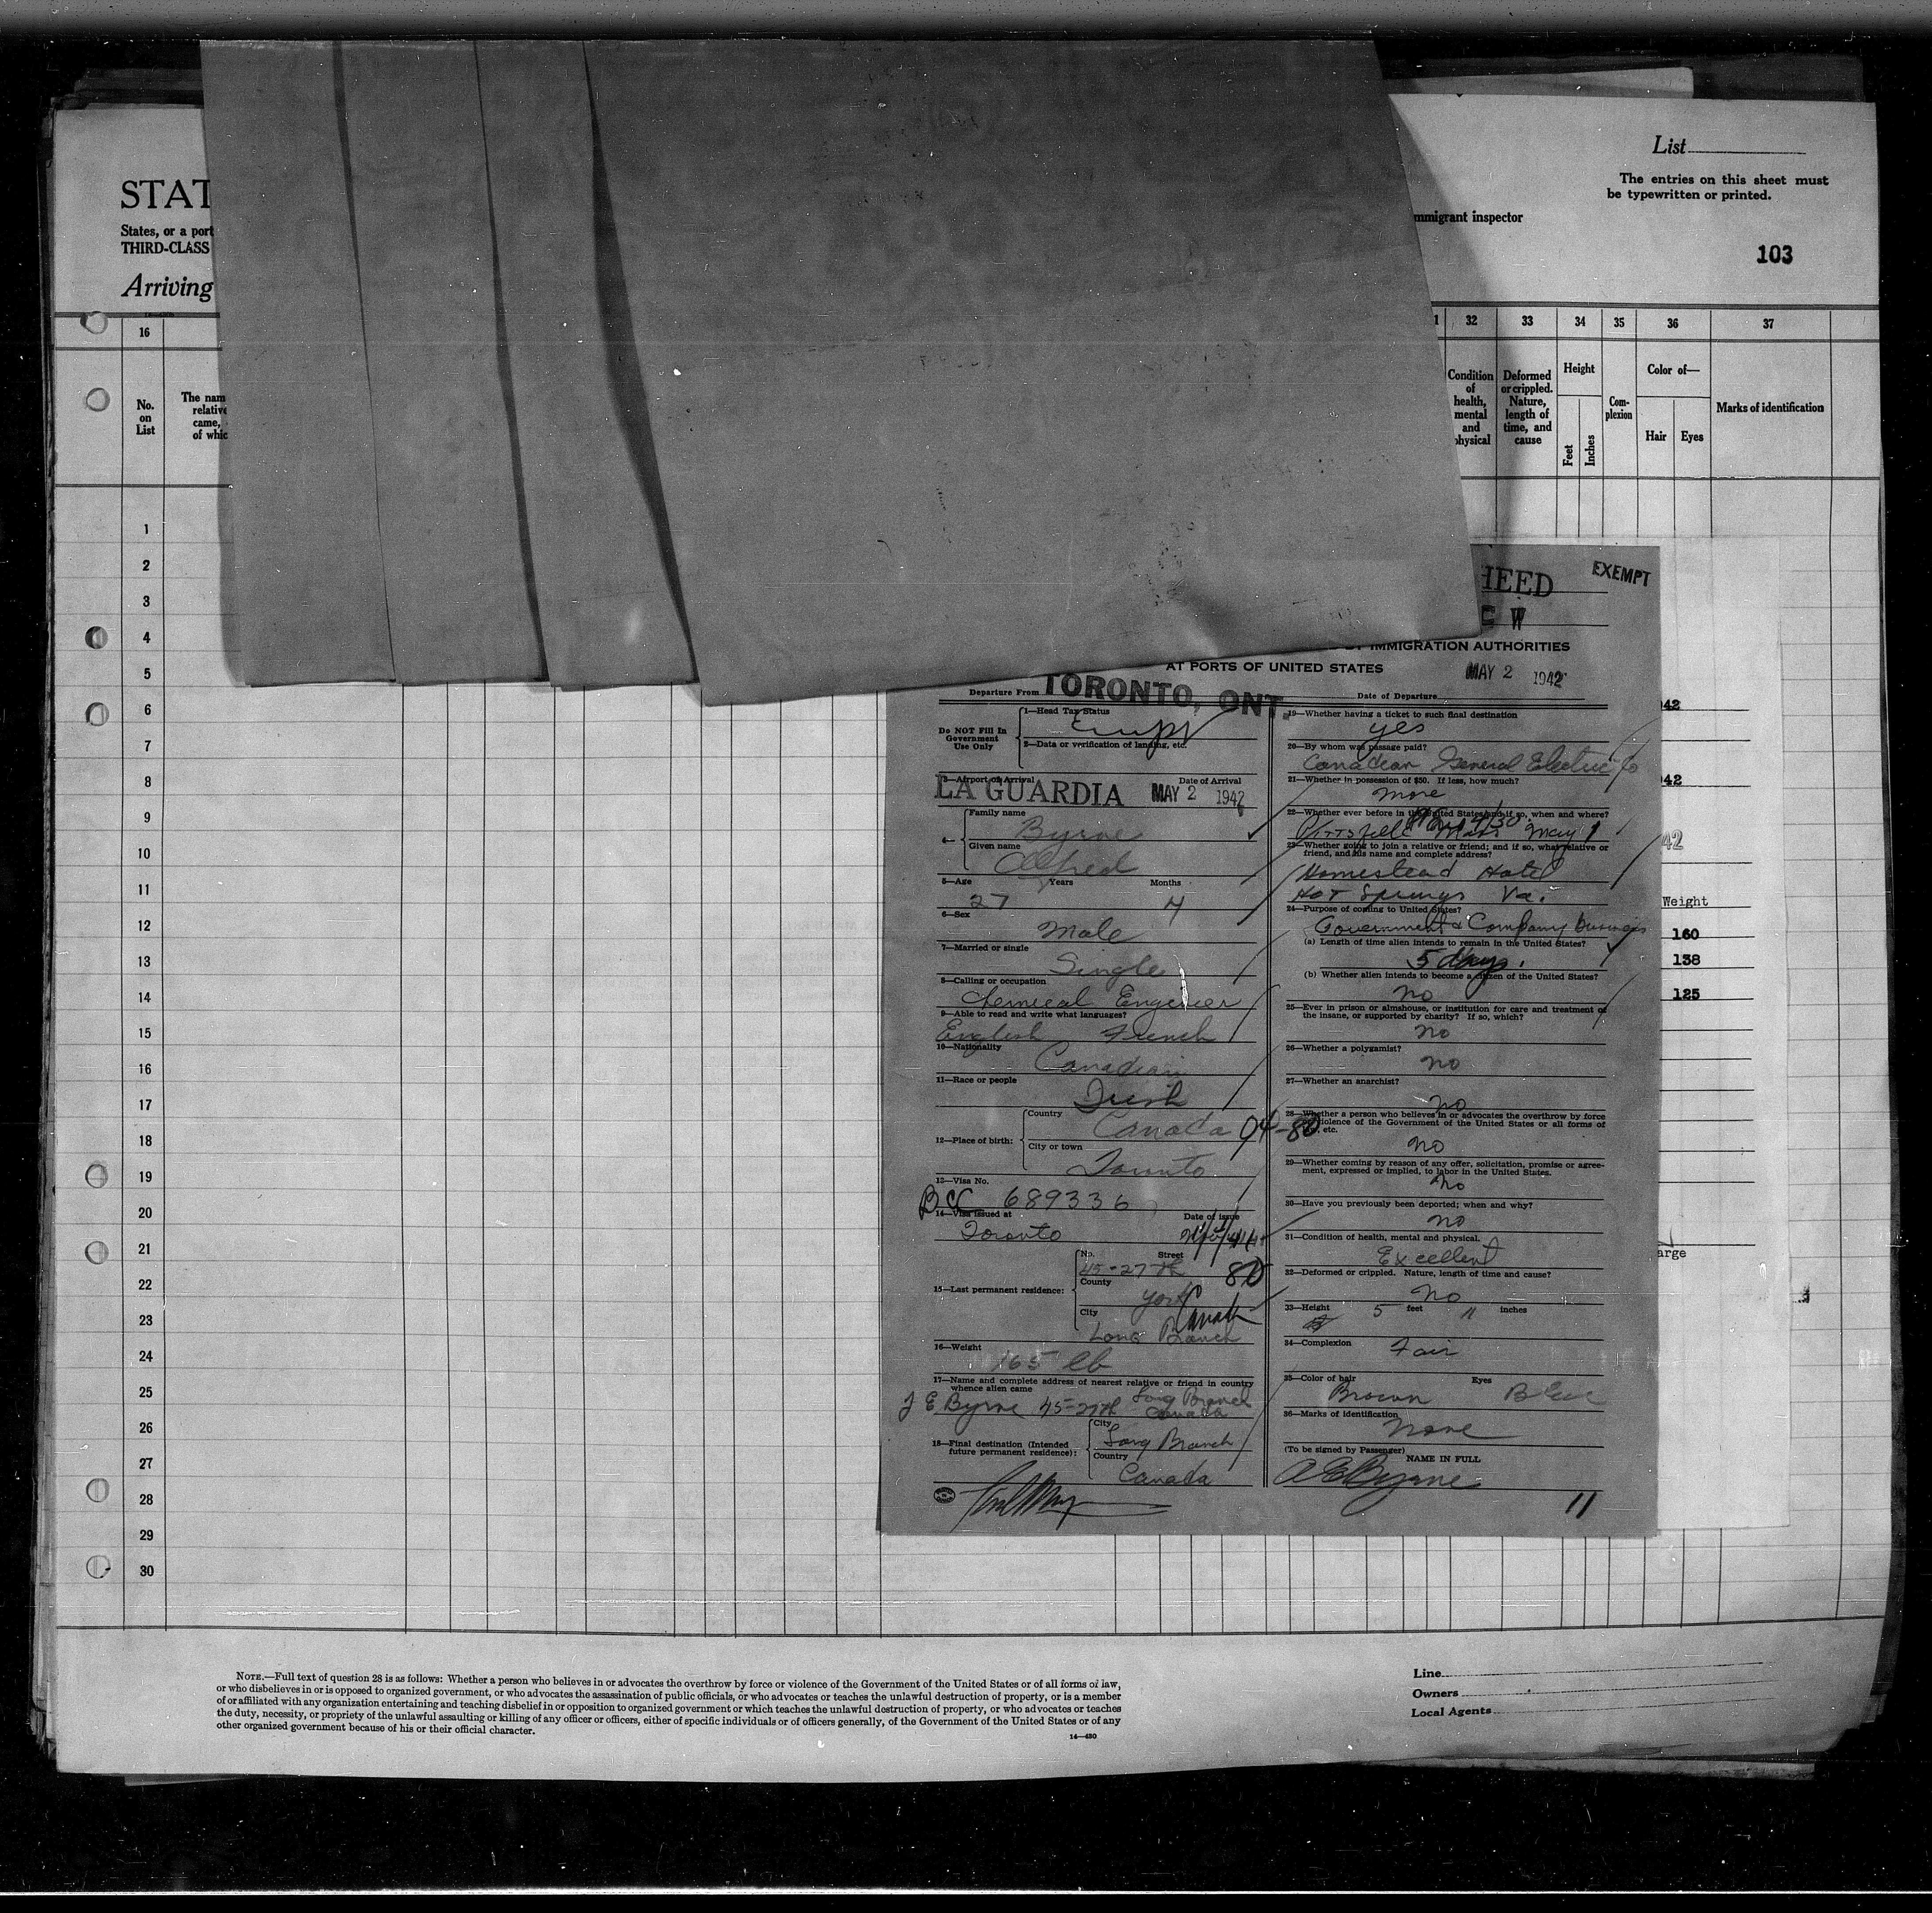 List
The entries on this sheet must
be typewritten or printed.
STAT
States, or a port
THIRD-CLASS
Arriving
mmigrant inspector
103
16
1 32 33 34 35 36 37
No.
on
List
The nam
relative
came,
of whic
Condition
of
health,
mental
and
physical
Deformed
or crippled.
Nature,
length of
time, and
cause
Height
Feet
Inches
Com-
plexion
Color of—
Hair Eyes
Marks of identification
1
2
3
4
5
6
7
8
9
10
11
12
13
14
15
16
17
18
19
20
21
22
23
24
25
26
27
28
29
30
HEED
EXEMPT
W
IMMIGRATION AUTHORITIES
AT PORTS OF UNITED STATES
MAY 2 1942
Departure From TORONTO, ONT.
Date of Departure
Do NOT Fill In
Government
Use Only
1—Head Tax Status
2—Data or verification of landing, etc.
3—Airport of Arrival
Date of Arrival
LA GUARDIA MAY 2 1942
4—
Family name
Byrne
Given name
Alfred
5—Age Years Months
27 4
6—Sex
Male
7—Married or single
Single
8—Calling or occupation
Chemical Engineer
9—Able to read and write what languages?
English French
10—Nationality
Canadian
11—Race or people
Irish
12—Place of birth:
Country
Canada 04-80
City or town
Toronto
13—Visa No.
BCC 689336
14—Visa issued at Date of issue
Toronto
15—Last permanent residence:
No. Street
45-27th 80
County
York
City Canada
Long Branch
16—Weight
165 lb
17—Name and complete address of nearest relative or friend in country
whence alien came
J E Byrne 45-27th Long Branch
Canada
18—Final destination (Intended
future permanent residence):
City
Long Branch
Country
Canada
19—Whether having a ticket to such final destination
yes
20—By whom was passage paid?
Canadian General Electric Co
21—Whether in possession of $50. If less, how much?
more
22—Whether ever before in the United States and if so, when and where?
Pittsfield Mass May 1
23—Whether going to join a relative or friend; and if so, what relative or
friend, and his name and complete address?
Homestead Hotel
Hot Springs Va.
24—Purpose of coming to United States?
Government & Company business
(a) Length of time alien intends to remain in the United States?
5 days.
(b) Whether alien intends to become a citizen of the United States?
no
25—Ever in prison or almshouse, or institution for care and treatment of
the insane, or supported by charity? If so, which?
no
26—Whether a polygamist?
no
27—Whether an anarchist?
no
28—Whether a person who believes in or advocates the overthrow by force
violence of the Government of the United States or all forms of
etc.
no
29—Whether coming by reason of any offer, solicitation, promise or agree-
ment, expressed or implied, to labor in the United States.
no
30—Have you previously been deported; when and why?
no
31—Condition of health, mental and physical.
Excellent
32—Deformed or crippled. Nature, length of time and cause?
no
33—Height 5 feet 11 inches
34—Complexion
Fair
35—Color of hair Eyes
Brown Blue
36—Marks of identification
none
(To be signed by Passenger)
NAME IN FULL
A E Byrne
11
42
42
42
Weight
160
138
125
arge
NOTE.—Full text of question 28 is as follows: Whether a person who believes in or advocates the overthrow by force or violence of the Government of the United States or of all forms of law,
or who disbelieves in or is opposed to organized government, or who advocates the assassination of public officials, or who advocates or teaches the unlawful destruction of property, or is a member
of or affiliated with any organization entertaining and teaching disbelief in or opposition to organized government or which teaches the unlawful destruction of property, or who advocates or teaches
the duty, necessity, or propriety of the unlawful assaulting or killing of any officer or officers, either of specific individuals or of officers generally, of the Government of the United States or of any
other organized government because of his or their official character.
14—430
Line
Owners
Local Agents